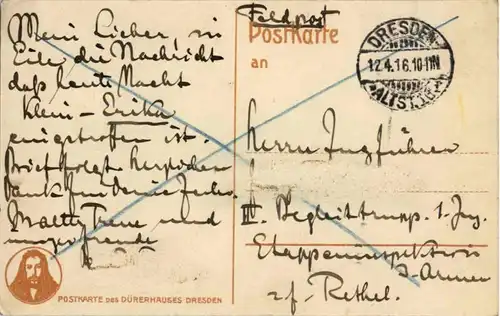 Mein Lieber, in
Eile die Nachricht
daß heute Nacht
Klein-Erika
eingetroffen ist.
Brief folgt. Herzlichen
Dank für deine
und
unsere Freude
Feldpost
Postkarte
an
DRESDEN
12.4.16.10-11N
ALTST.
Herrn Zugführer
III. Begleittrupp. 1. Zug.
Etappeninspektion
3. Armee
z.f. Rethel.
POSTKARTE DES DÜRERHAUSES DRESDEN